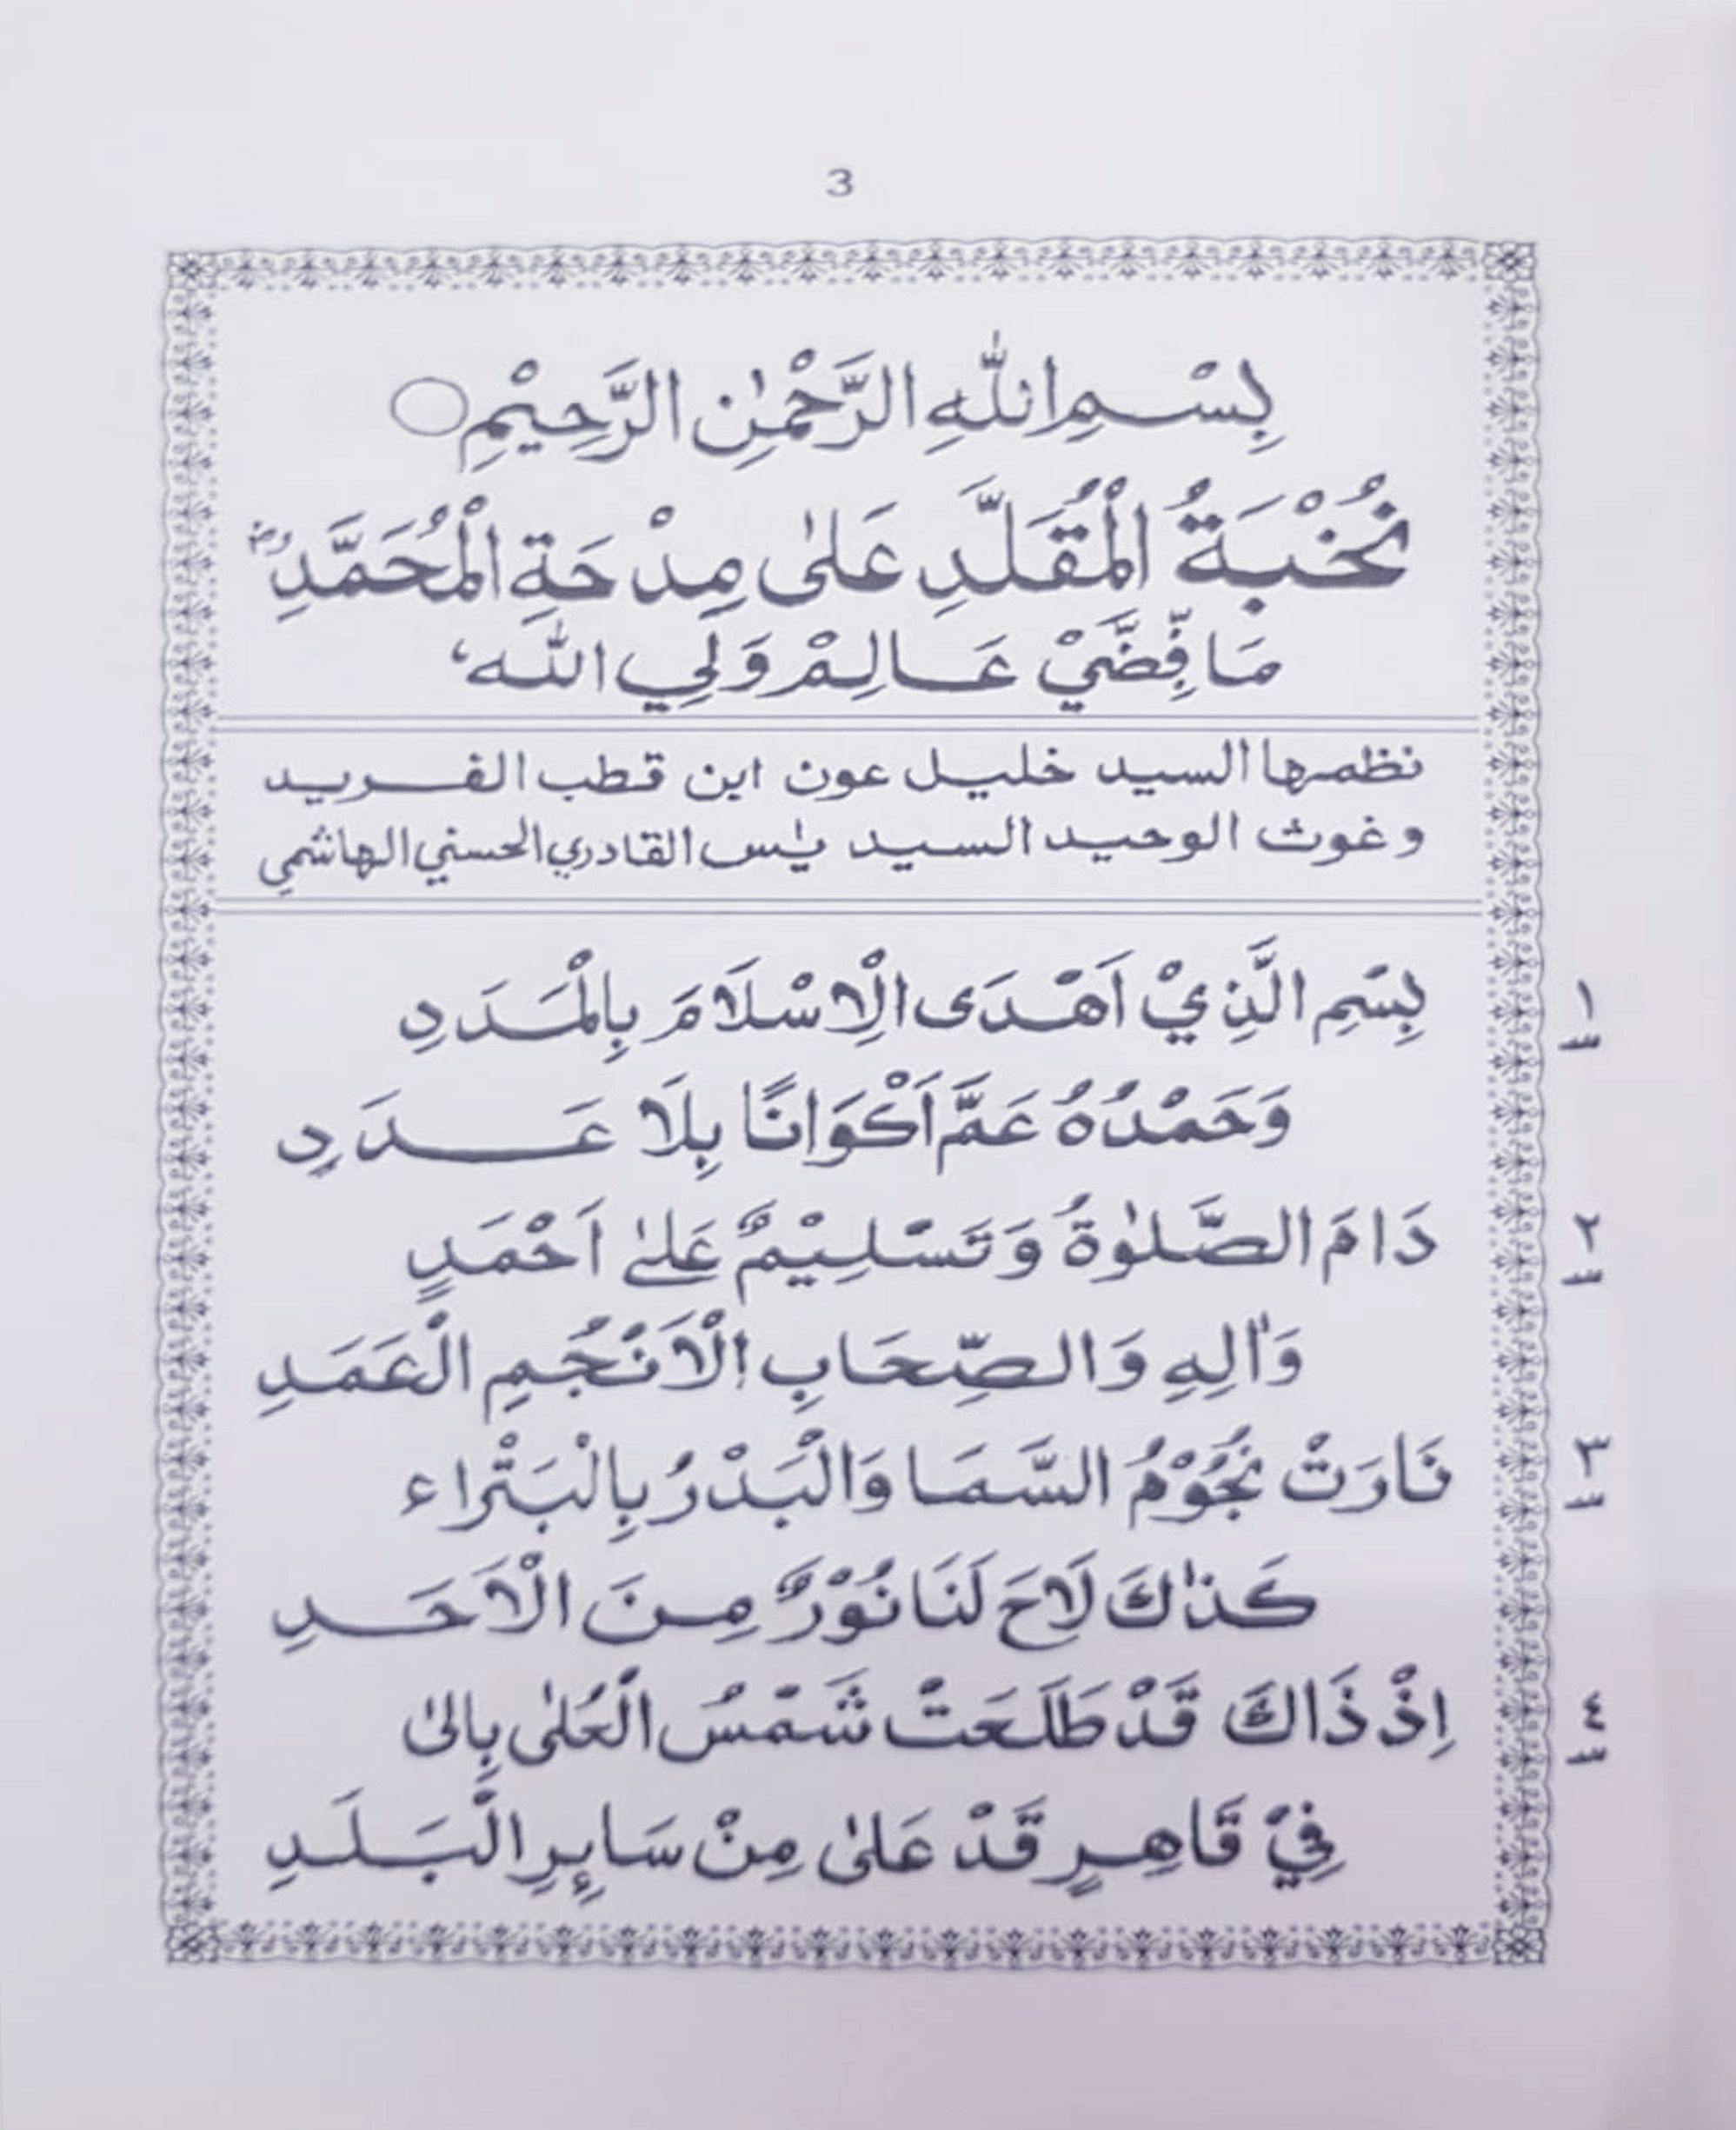 3
بِسْمِ اللّٰهِ الرَّحْمٰنِ الرَّحِيْمِ
نُخْبَةُ الْمُقَلَّدِ عَلٰى مِدْحَةِ الْمُحَمَّدِ رض
مَافِّضَّيْ عَالِمْ وَلِي اللّٰه،
نظمها السيد خليل عون ابن قطب الفريد
وغوث الوحيد السيد يٰس القادري الحسني الهاشمي
١ بِسْمِ الَّذِيْ اَهْدَى الْاِسْلَامَ بِالْمَدَدِ
وَحَمْدُهُ عَمَّ اَكْوَانًا بِلَا عَدَدِ
٢ دَامَ الصَّلٰوةُ وَتَسْلِيْمٌ عَلىٰ اَحْمَدٍ
وَاٰلِهِ وَالصِّحَابِ الْاَنْجُمِ الْعَمَدِ
٣ نَارَتْ نُجُوْمُ السَّمَا وَالْبَدْرُ بِالْبَتْراء
كَذٰكَ لَاحَ لَنَا نُوْرٌ مِنَ الْاَحَدِ
٤ اِذْ ذَاكَ قَدْ طَلَعَتْ شَمْسُ الْعُلٰى بِالىٰ
فِيْ قَاهِرٍ قَدْ عَلىٰ مِنْ سَايِٕرِ الْبَلَدِ